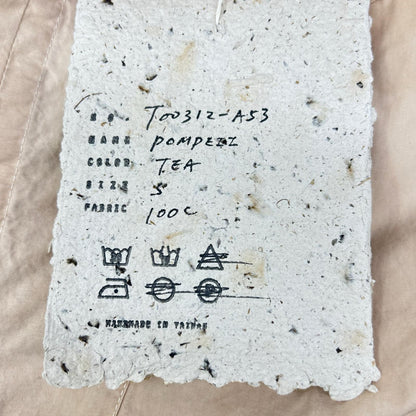 NO. T00312-A53
NAME POMPEII
COLOR TEA
SIZE S
FABRIC 100C
HANDMADE IN TAIWAN